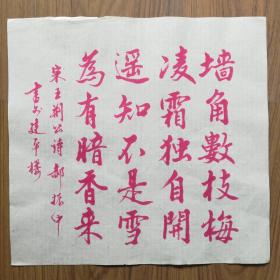 墙角數枝梅
凌霜独自開
遥知不是雪
為有暗香来
宋王荆公诗鄒振中
書於建平樓